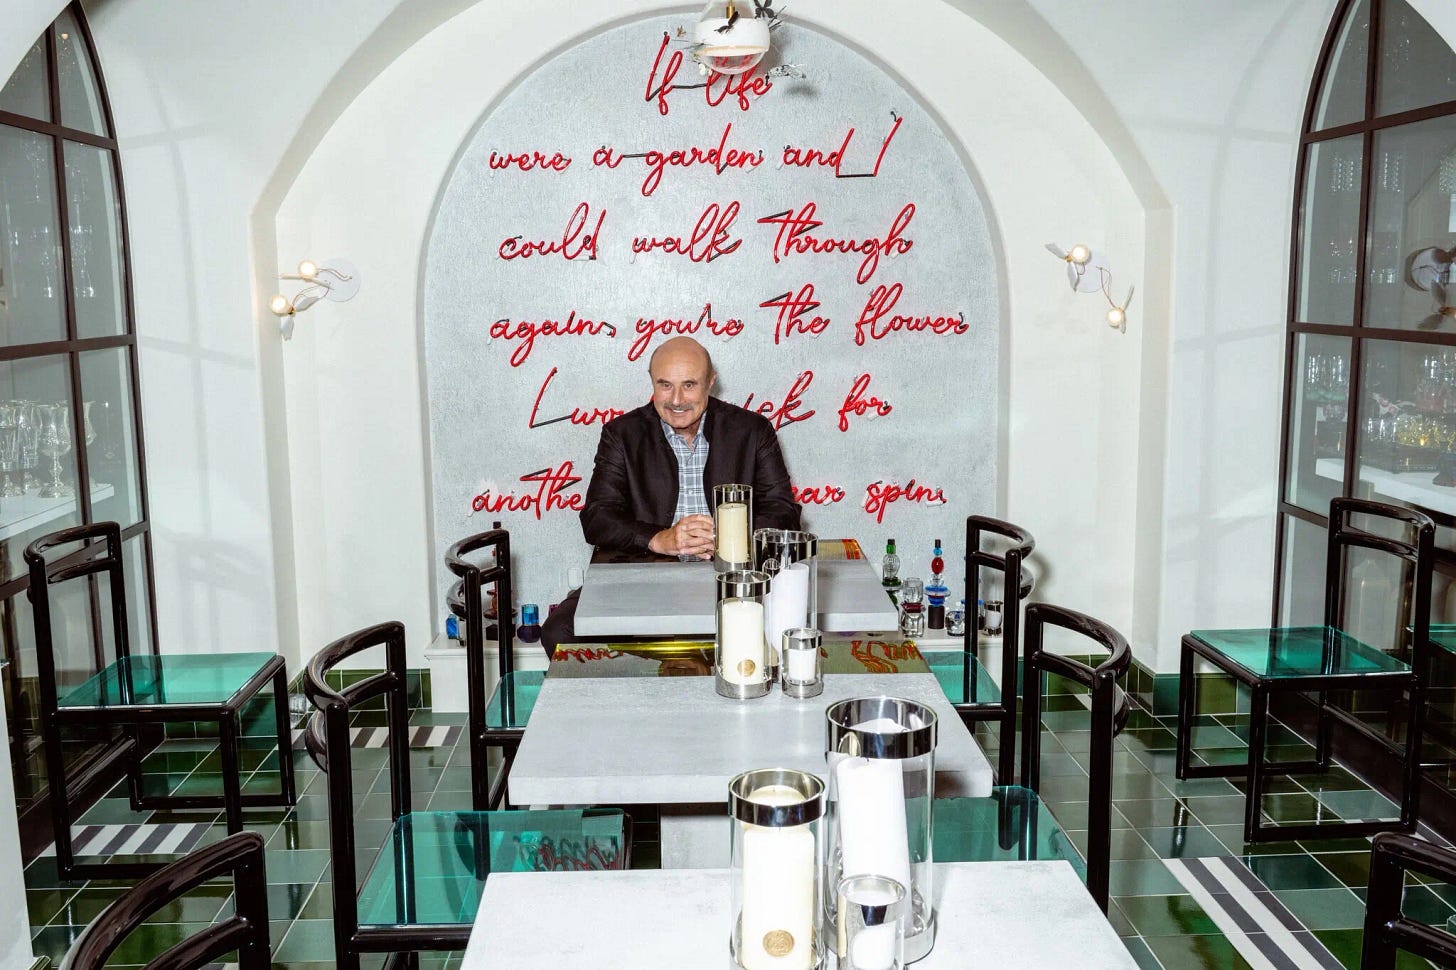 If life
were a garden and I
could walk through
again, you're the flower
I wo ick for
anothe ear spin.